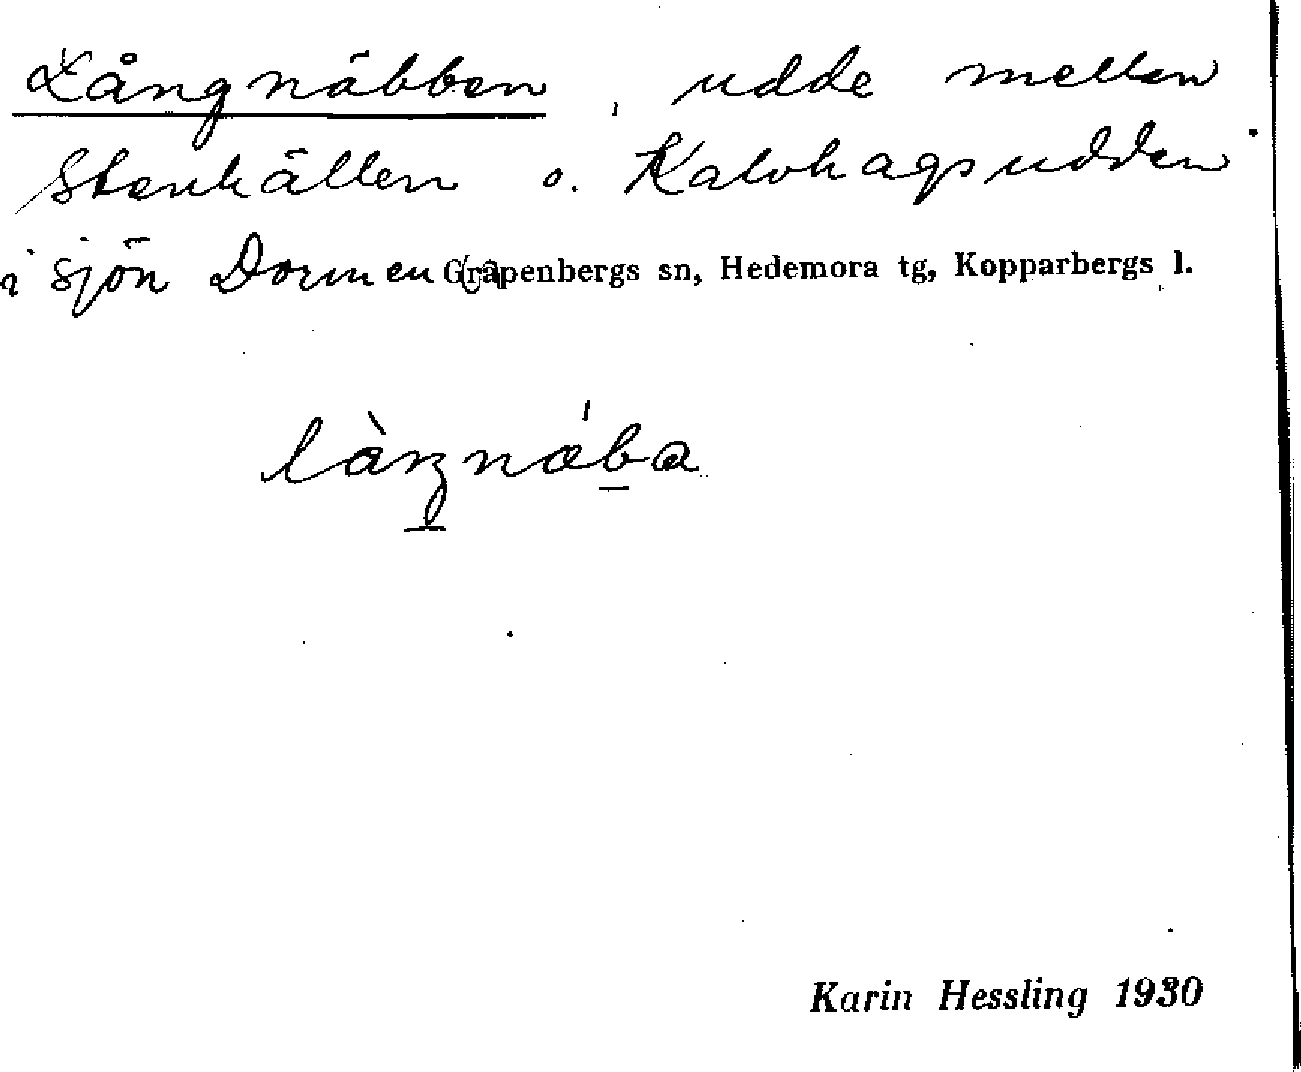 Långnäbben, udde mellan
Stenhällen o. Kalvhagsudden
i sjön Dormen Grapenbergs sn, Hedemora tg, Kopparbergs l.
Karin Hessling 1930